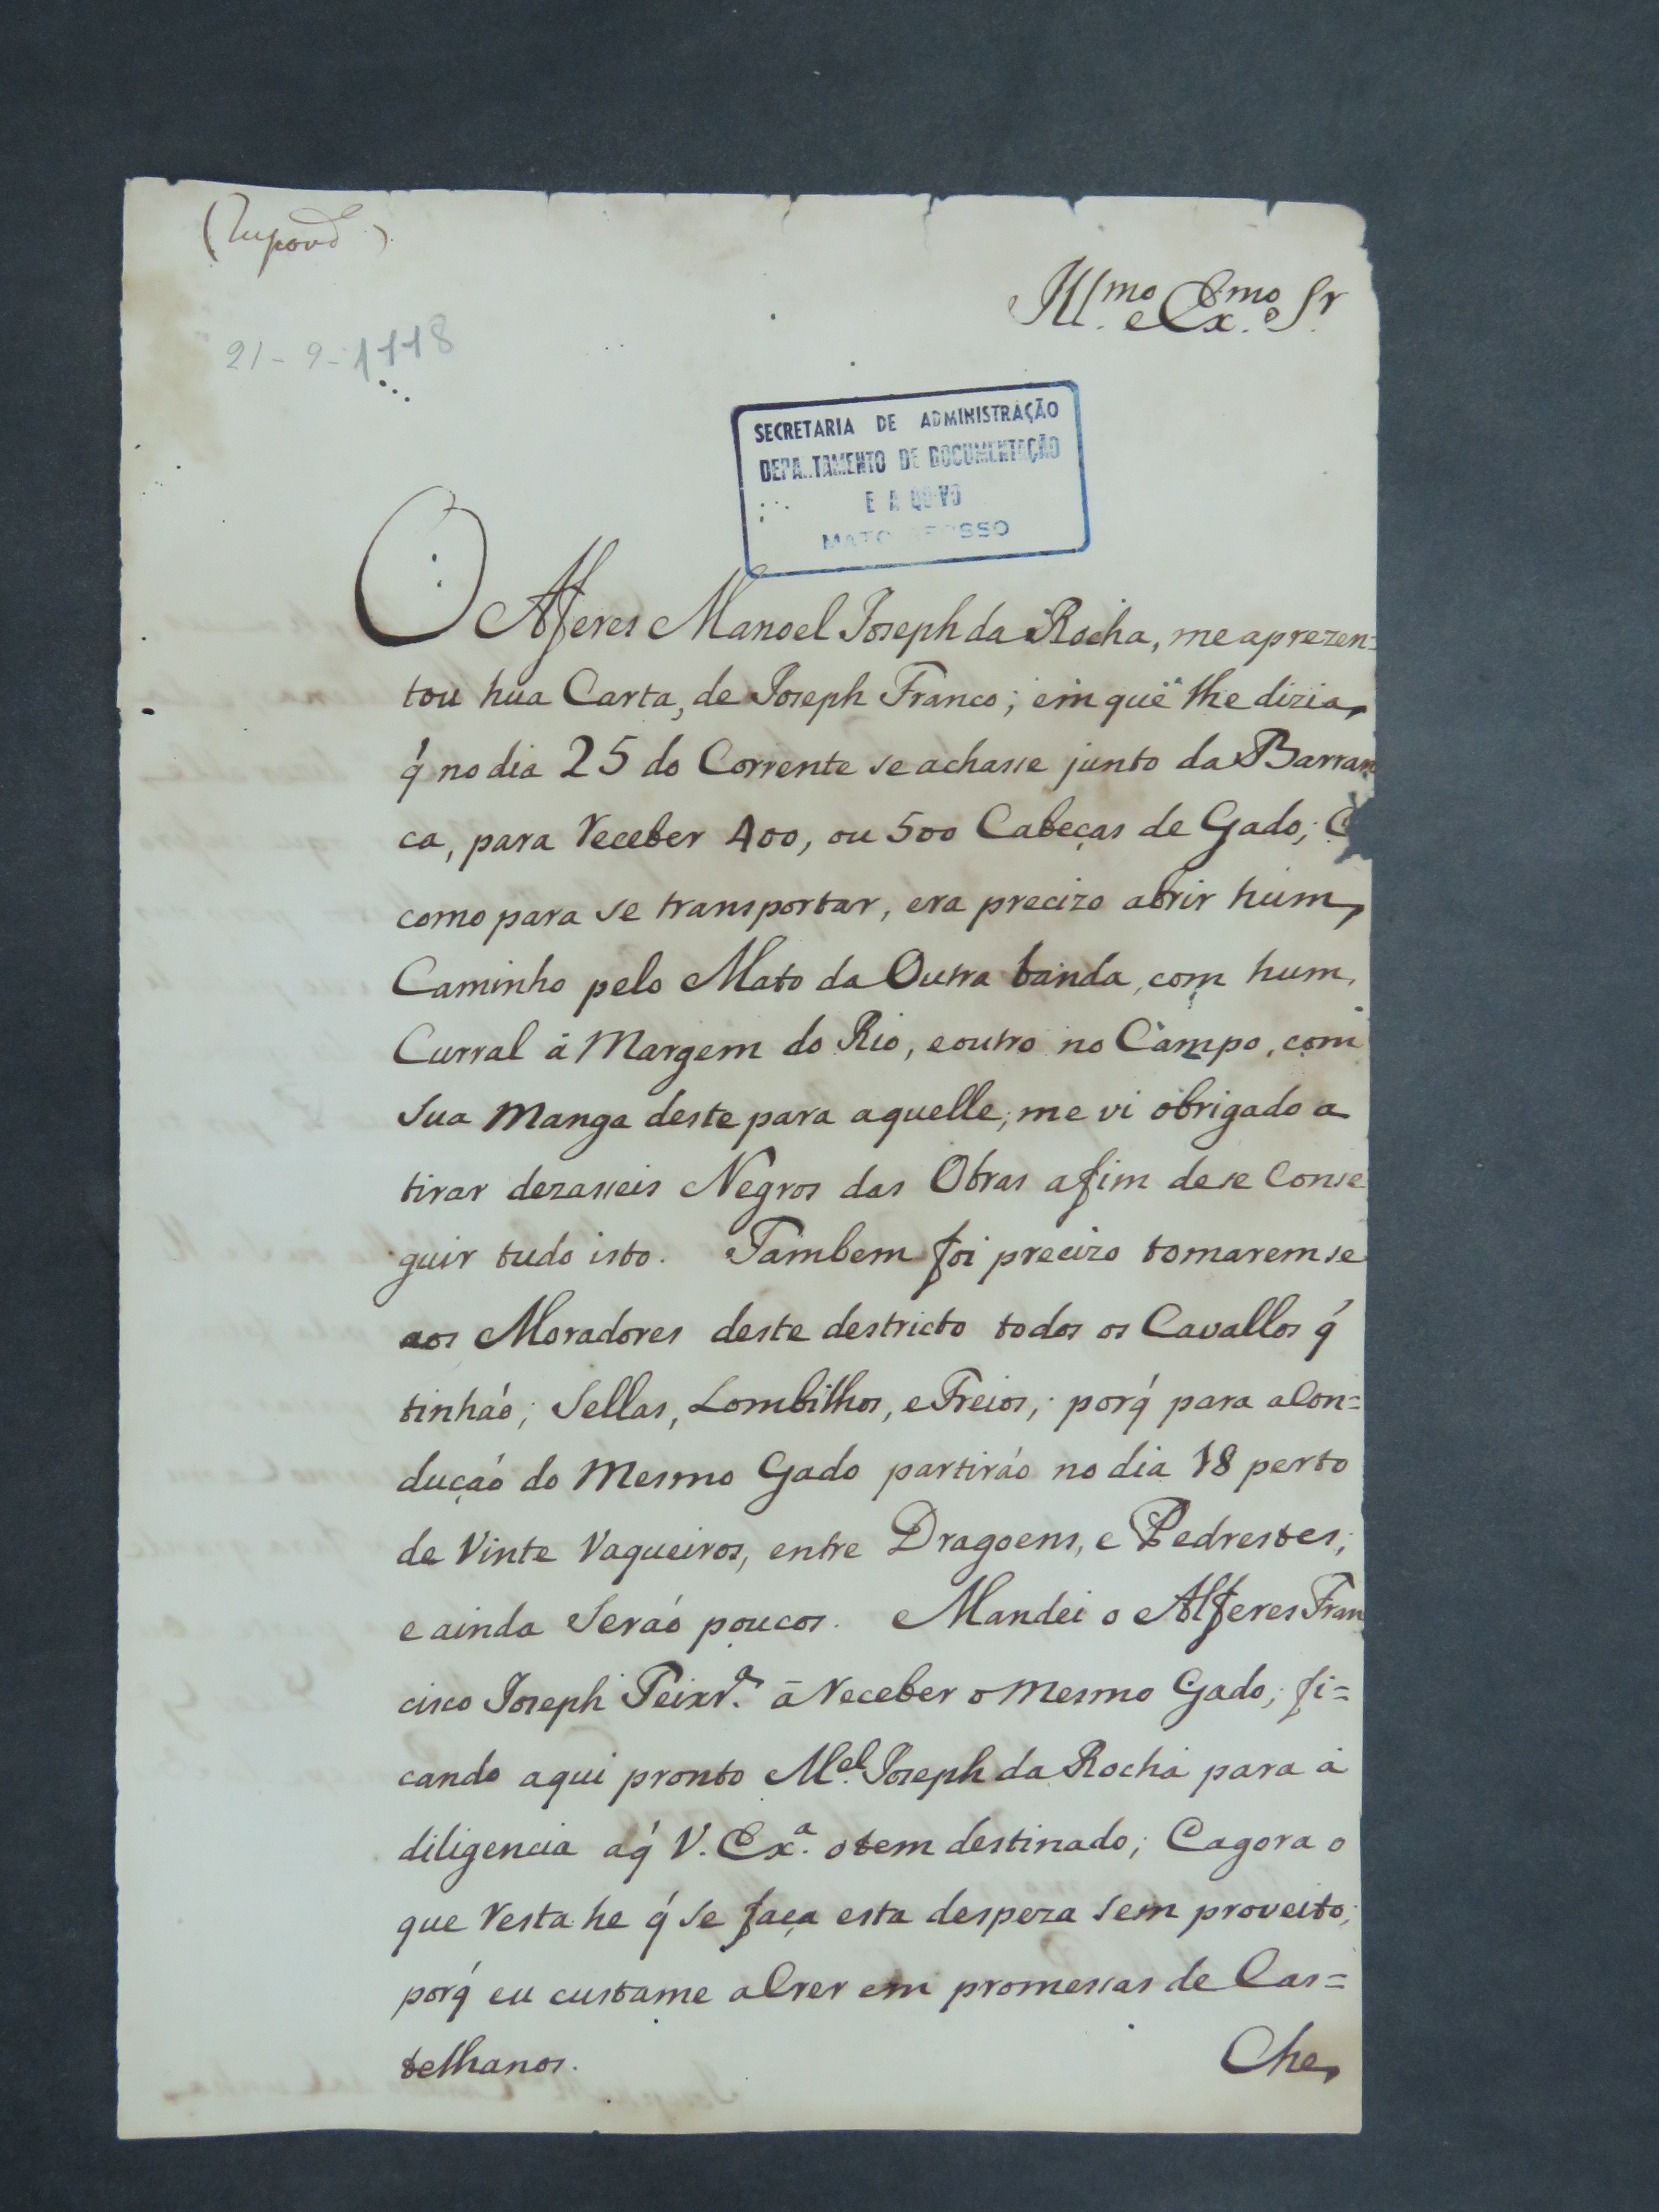 (Respond.)
Ill.mo e Ex.mo Sr.
21-9-1778
SECRETARIA DE ADMINISTRAÇÃO
DEPARTAMENTO DE DOCUMENTAÇÃO
E ARQUIVO
MATO GROSSO
O Alferes Manoel Joseph da Rocha, me aprezen=
tou hua Carta, de Joseph Franco; em que lhe dizia,
q́ no dia 25 do Corrente se achasse junto da Barran
ca, para receber 400, ou 500 Cabeças de Gado; E
como para se transportar, era precizo abrir hum,
Caminho pelo Mato da Outra banda, com hum,
Curral á Margem do Rio, e outro no Campo, com
Sua Manga deste para aquelle; me vi obrigado a
tirar dezasseis Negros das Obras afim de se Conse
guir tudo isto. Tambem foi precizo tomaremse
aos Moradores deste destricto todos os Cavallos q́
tinháo; Sellas, Lombilhos, e Freios; porq́ para a Con=
duçaó do Mesmo Gado partiráo no dia 18 perto
de Vinte Vaqueiros, entre Dragoens, e Pedrestes;
e ainda Seraó poucos. Mandei o Alferes Fran
cisco Joseph Teixr.ª á receber o Mesmo Gado; fi=
cando aqui pronto M.el Joseph da Rocha para á
diligencia aq́ V. Ex.ª o tem destinado; E agora o
que resta he q́ se faça esta despeza sem proveito;
porq́ eu custame a Crer em promessas de Cas=
telhanos.
Che,